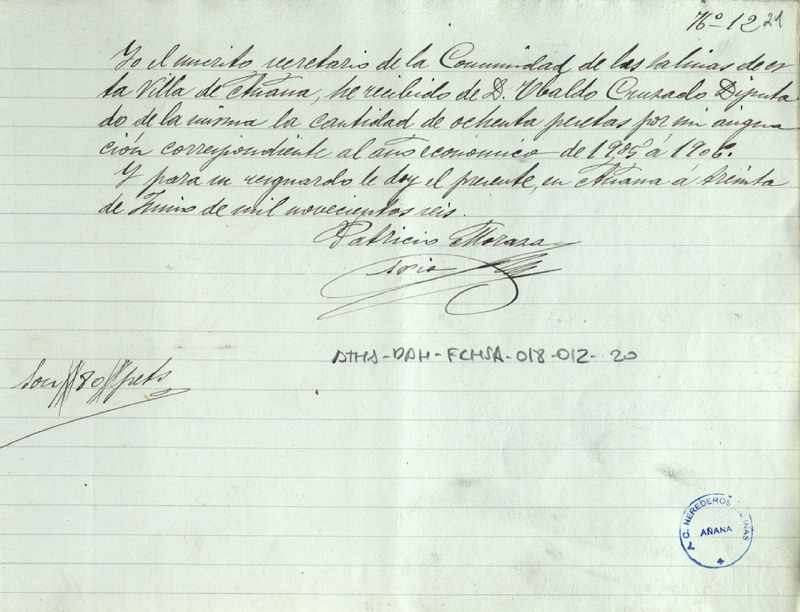 Nº 12 21
Yo el inscrito secretario de la Comunidad de las salinas de es
ta Villa de Añana, he recibido de D. Ubaldo Cruzado Diputa
do de la misma la cantidad de ochenta pesetas por mi asigna
ción correspondiente al año economico de 1905 á 1906.
Y para su resguardo le doy el presente, en Añana á treinta
de Junio de mil novecientos seis.
Patricio Moraza
Srio
ATHA-DAH-FCHSA-018-012-20
Son 80 pets
C. HEREDEROS
AÑANA